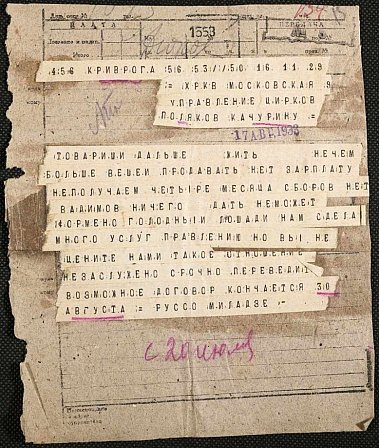 ПЛАТА
ПЕРЕДАЧА
1553
456 КРИВРОГА 56 53//50 16 11 29
= ХРКВ МОСКОВСКАЯ 9
УПРАВЛЕНИЕ ЦИРКОВ
ПОЛЯКОВ КАЧУРИНУ =
17 АВГ.1933
ТОВАРИЩИ ДАЛЬШЕ ЖИТЬ НЕЧЕМ
БОЛЬШЕ ВЕЩЕЙ ПРОДАВАТЬ НЕТ ЗАРПЛАТУ
НЕПОЛУЧАЕМ ЧЕТЫРЕ МЕСЯЦА СБОРОВ НЕТ
ВАДИМОВ НИЧЕГО ДАТЬ НЕМОЖЕТ
ФОРМЕНО ГОЛОДНЫИ ЛОШАДИ НАМ СДЕЛА
МНОГО УСЛУГ ПРАВЛЕНИЮ НО ВЫ НЕ
ЦЕНИТЕ НАМИ ТАКОЕ ОТНОШЕНИЕ
НЕЗАСЛУЖЕНО СРОЧНО ПЕРЕВЕДИТ
ВОЗМОЖНОЕ ДОГОВОР КОНЧАЕТСЯ 30
АВГУСТА = РУССО МИЛАДЗЕ -
с 20 июля